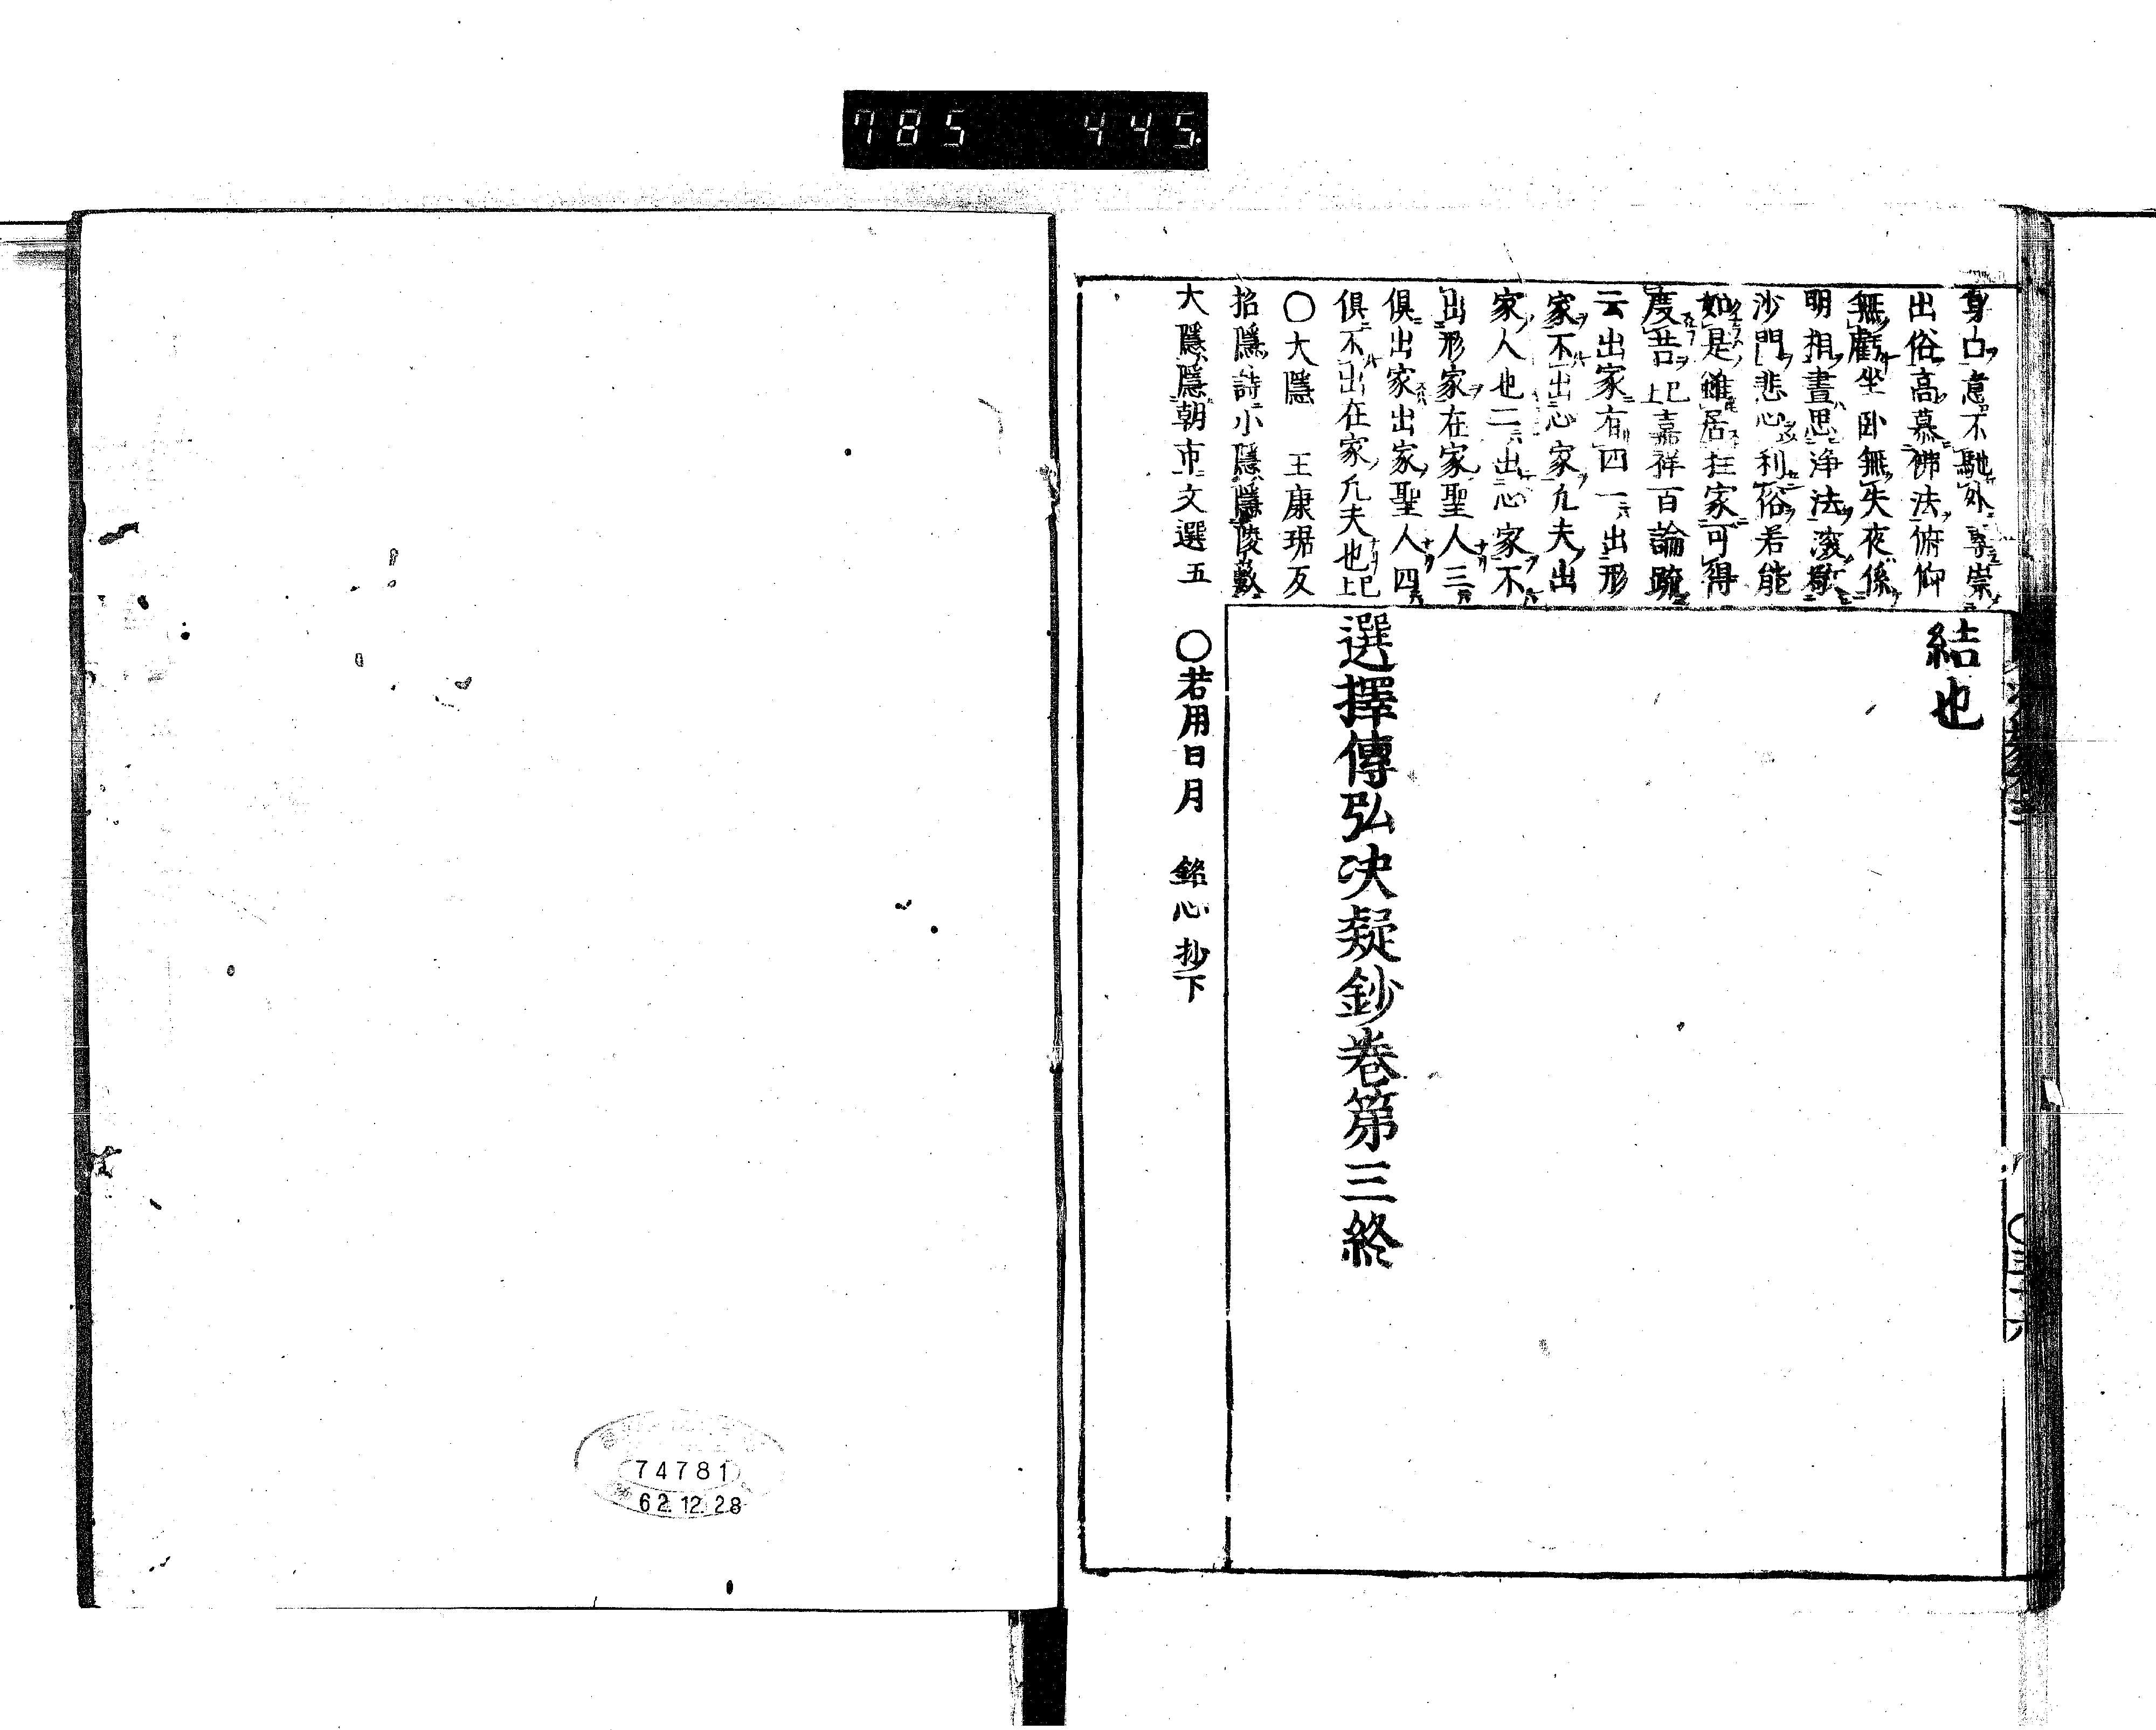 785 445
身口意不馳外專崇
出俗高慕佛法俯仰
無虧坐卧無失夜係
明相晝思淨法深敬
沙門悲心利俗若能
如是雖居在家可得
度苦已上嘉祥百論疏
云出家有四一出形
家不出心家凡夫出
家人也二出心家不
出形家在家聖人三
俱出家出家聖人四
俱不出在家凡夫也已上
○大隱 王康琚反
招隱詩小隱隱陵藪
大隱隱朝市文選五
○若用日月 銘心抄下
結也
選擇傳弘決疑鈔卷第三終
74781
62.12.28